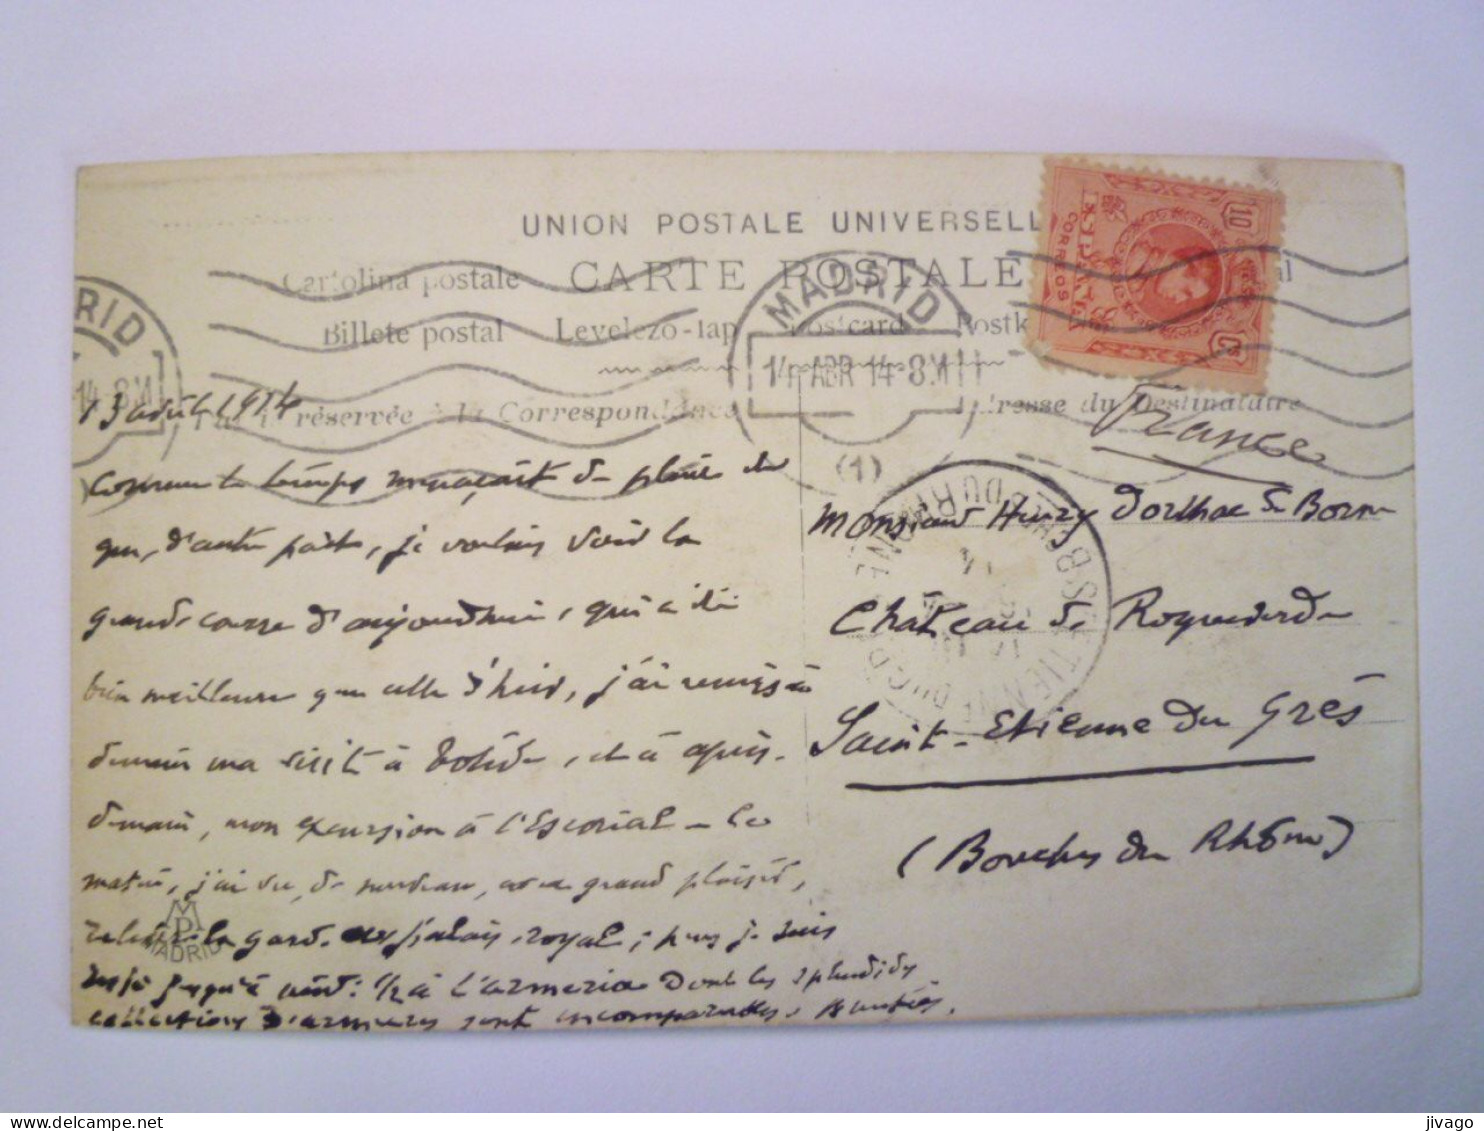 UNION POSTALE UNIVERSELL
Cartolina postale CARTE POSTALE
Billete postal Levelező-lap Postcard Postk
MADRID
14 ABR 14-8M
(1)
RID
14-8M
réservée à la Correspondance
Adresse du Destinataire
10 Cs
CORREOS
ESPAÑA
13 avril 1914
Comme le temps menaçait de pluie et
que, d'autre part, je voulais voir la
grande course d'aujourd'hui, qui a été
bien meilleure que celle d'hier, j'ai remis à
demain ma visite à Tolède, et à après-
demain, mon excursion à l'Escorial - Ce
matin, j'ai vu, de nouveau, avec grand plaisir,
relever la garde au palais royal; puis je suis
resté jusqu'à 1/2 à l'armeria dont les splendides
collections d'armures sont incomparables.
France
Monsieur Henry Dorlhac de Borne
Château de Roquederde
Saint-Etienne du Grès
(Bouches du Rhône)
MP
MADRID
jivago